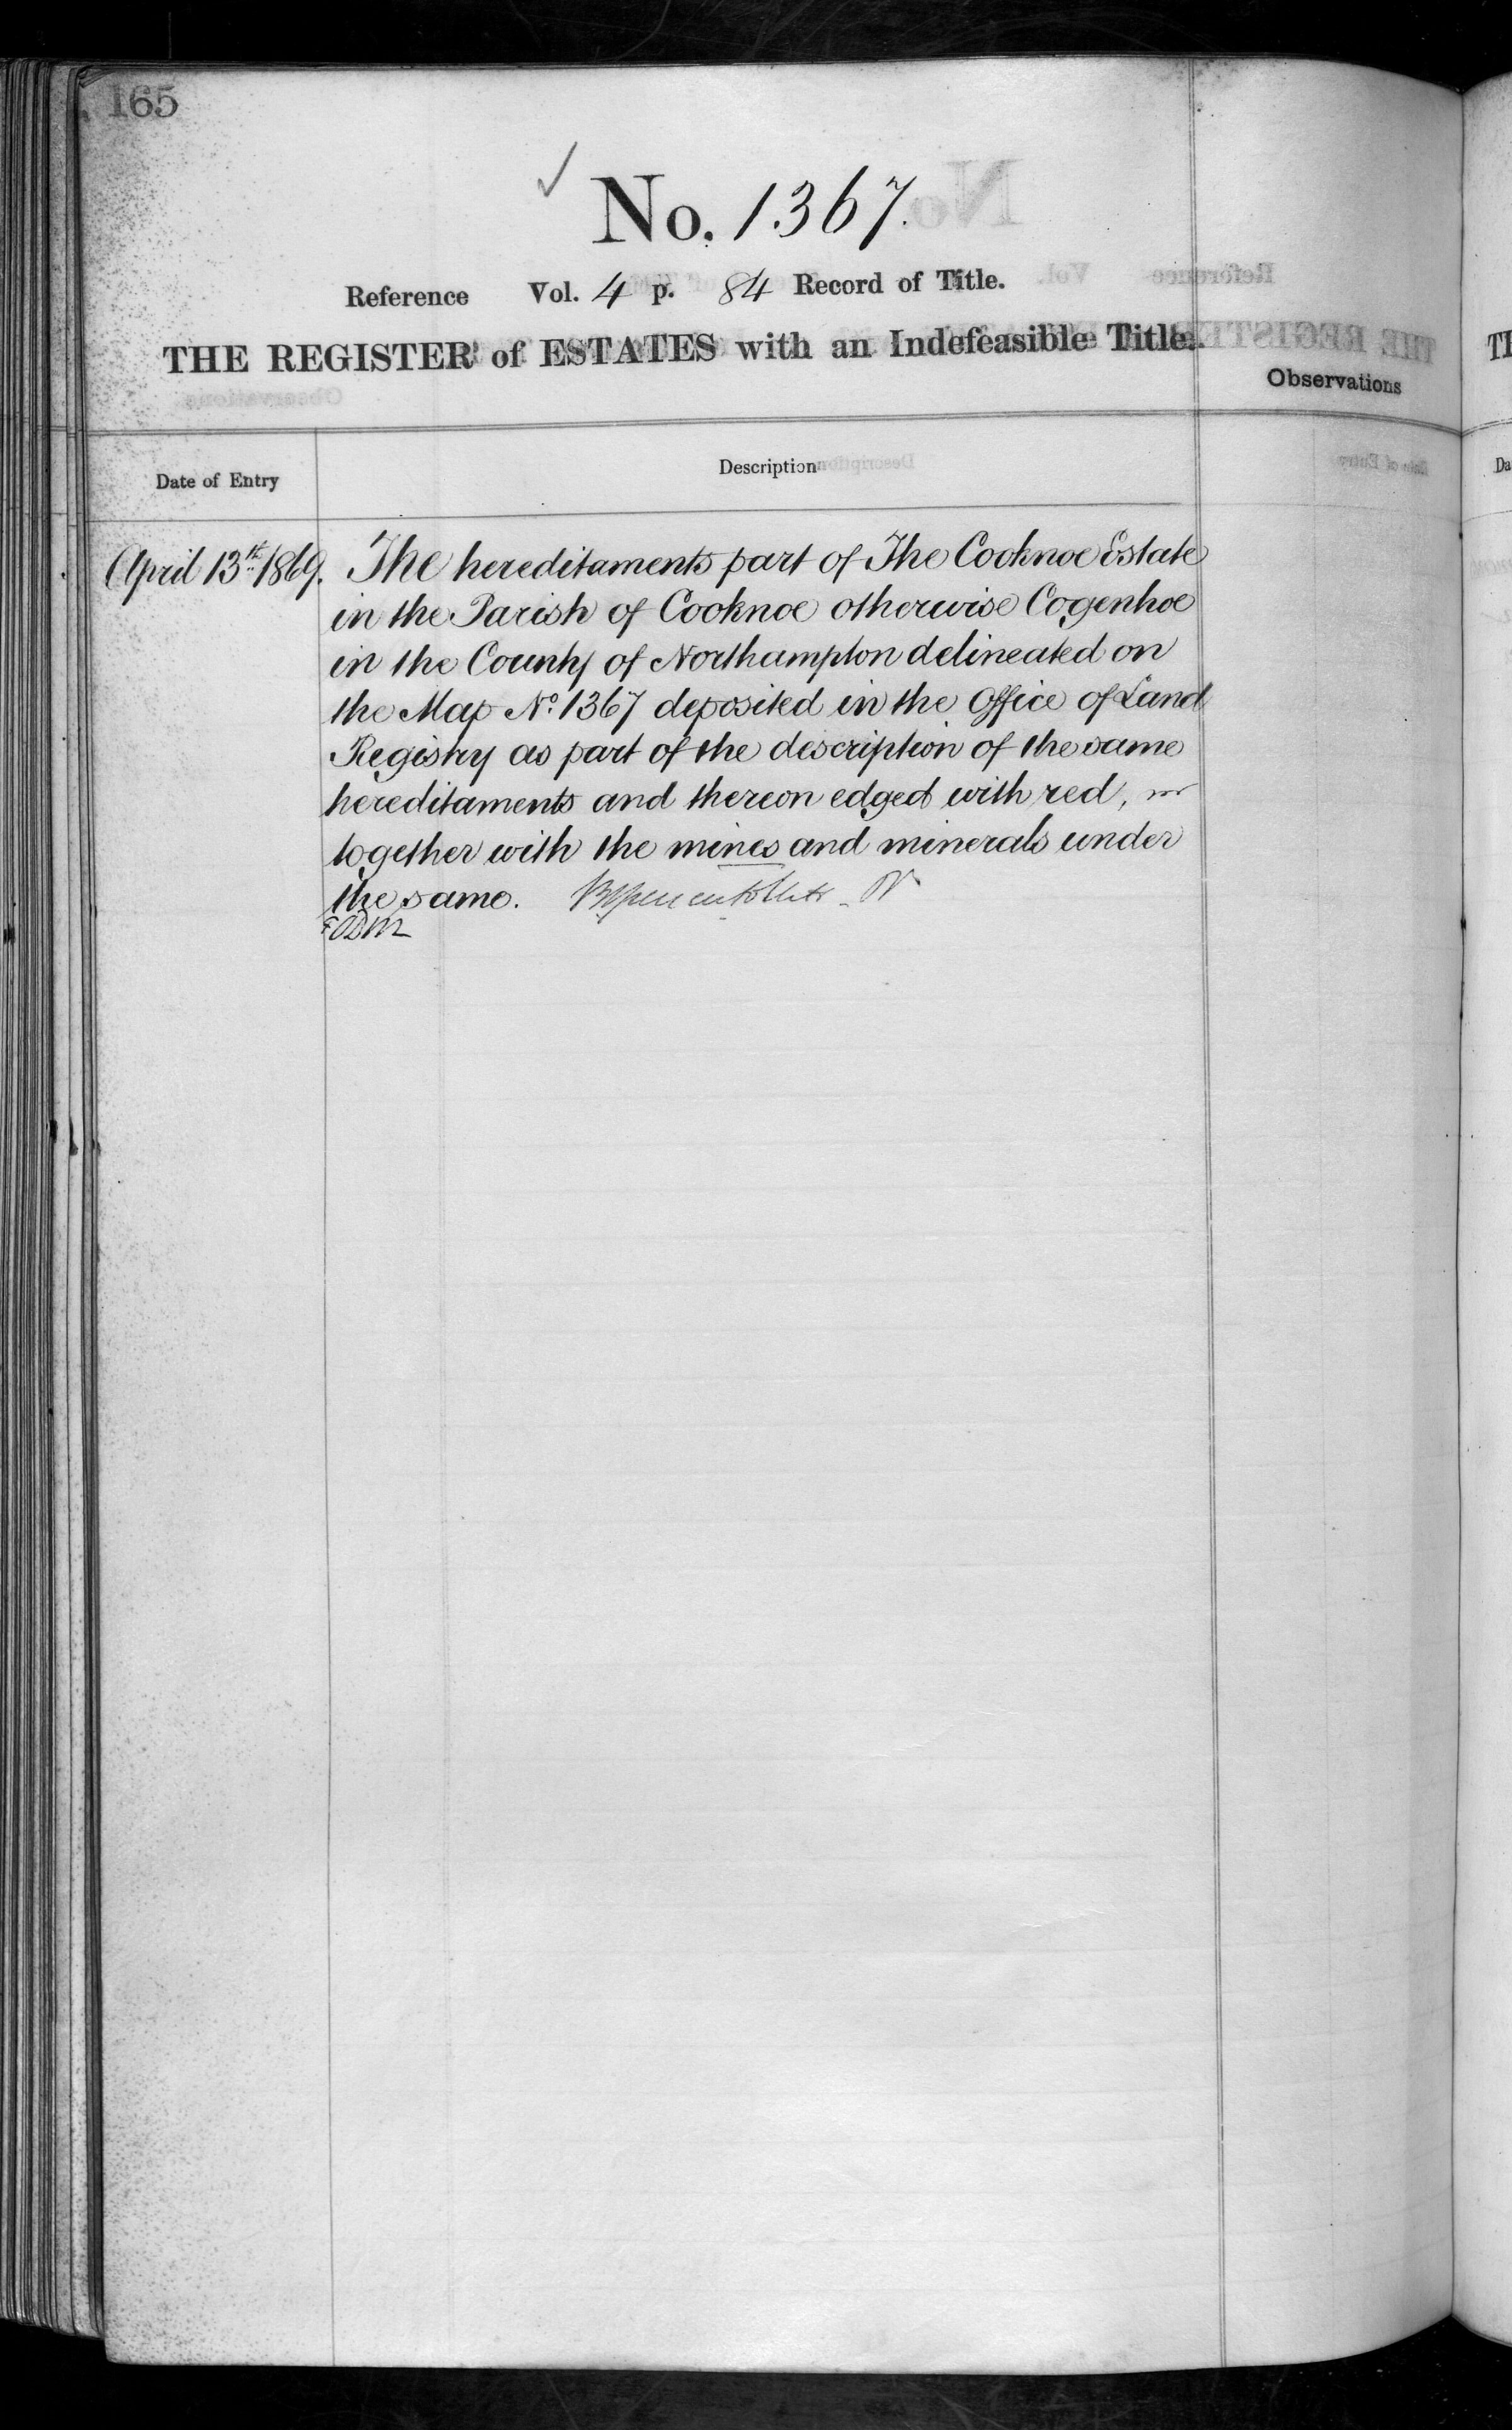 165
No. 1367.
Reference Vol. 4 p. 84 Record of Title.
THE REGISTER of ESTATES with an Indefeasible Title.
Observations
Date of Entry
Description
April 13th 1869.
The hereditaments part of The Cooknoe Estate
in the Parish of Cooknoe otherwise Cogenhoe
in the County of Northampton delineated on
the Map No. 1367 deposited in the Office of Land
Registry as part of the description of the same
hereditaments and thereon edged with red,
together with the mines and minerals under
the same.